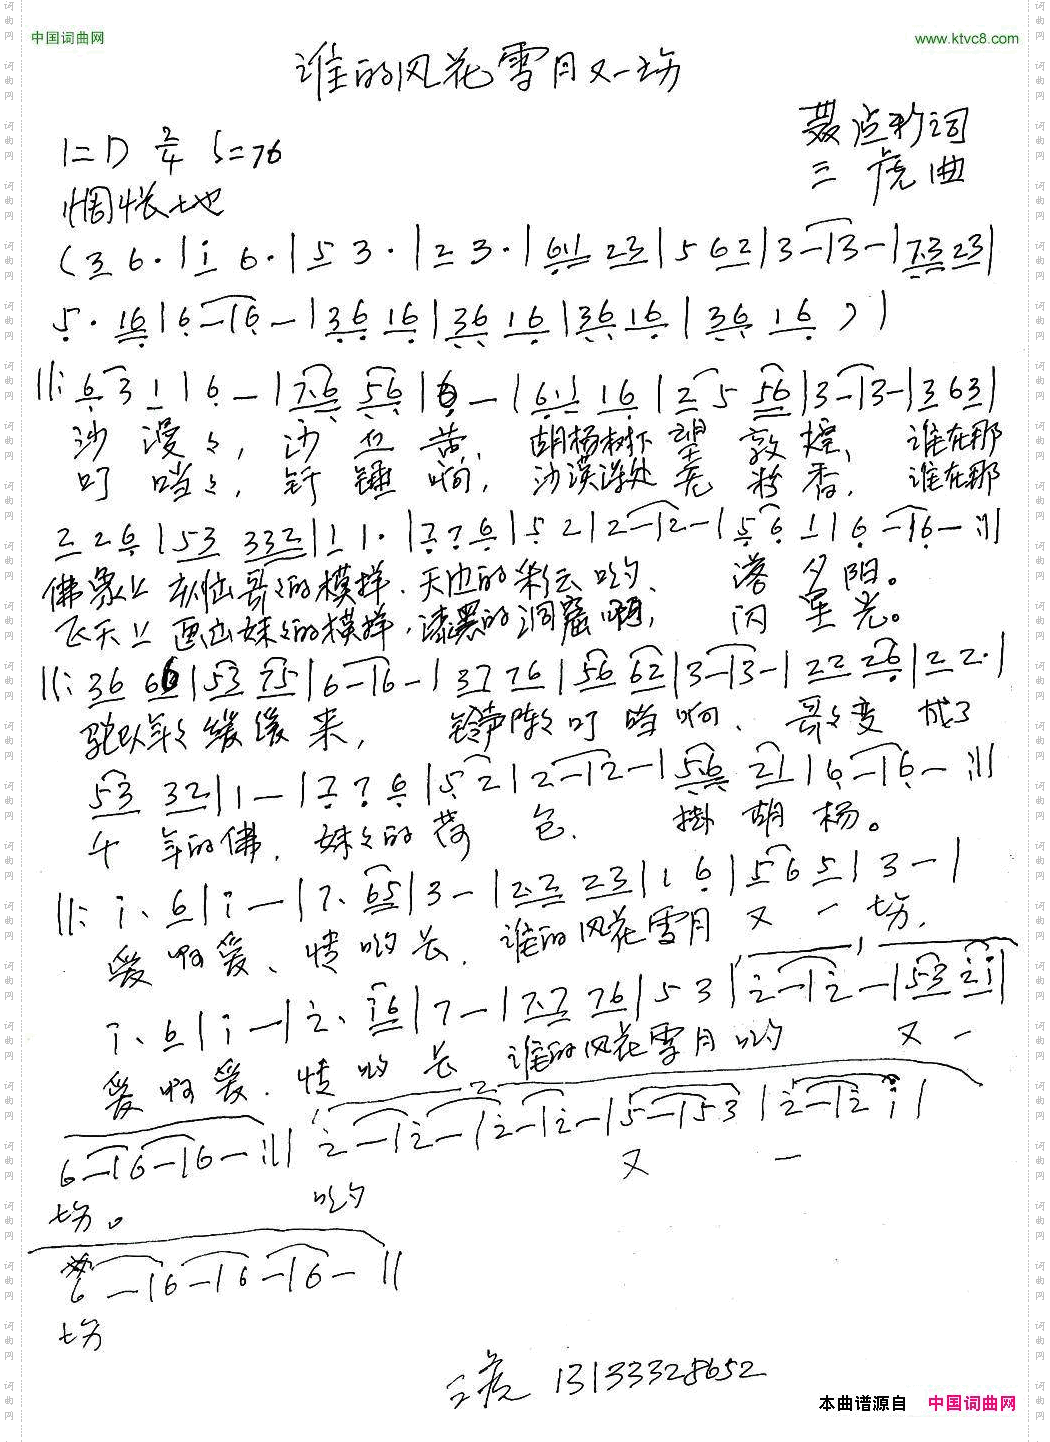 中国词曲网
www.ktvc8.com
谁的风花雪月又一场
聂占彩词
三虎曲
1=D 2/4 ♩=76
惆怅地
(3 6· | i 6· | 5 3· | 2 3· | 61 23 | 5 62 | 3 - | 3 - | 7·3 23 |
5· 16 | 6 - | 6 - | 36 16 | 36 16 | 36 16 | 36 16 ) |
||: 6 3 1 | 6 - | 7·6 56 | 6 - | 6·1 16 | 2 5 56 | 3 - | 3 - | 3 63 |
沙漫々,沙丘黄,胡杨树下望敦煌,谁在那
叮噹々,钎锤响,沙漠深处无粉香,谁在那
2 2 6 | 53 332 | 1 1· | 7 7 6 | 5 2 | 2 - | 2 - | 5 6 1 | 6 - | 6 - :||
佛象上刻出哥々的模样,天边的彩云哟,落夕阳。
飞天上画出妹々的模样,漆黑的洞窟啊,闪星光。
||: 36 66 | 53 75 | 6 - | 6 - | 37 76 | 56 62 | 3 - | 3 - | 22 26 | 2 2· |
驼队年々缓缓来,铃声阵々叮噹响,哥々变成了
53 32 | 1 - | 7 7 6 | 5 2 | 2 - | 2 - | 56 21 | 6 - | 6 - :||
千年的佛,妹々的荷包,掛胡杨。
||: i· 6 | i - | 7· 65 | 3 - | 2·2 23 | 1 6 | 5 6 5 | 3 - |
爱啊爱,情哟长,谁的风花雪月又一场,
i· 6 | i - | 2· i6 | 7 - | 7·7 76 | 5 3 | 2 - | 2 - | 53 2i |
爱啊爱,情哟长 谁的风花雪月哟 又一
6 - | 6 - | 6 - :|| 2 - | 2 - | 2 - | 2 - | 5 - | 5 3 | 2 - | 2 i |
场。 哟 又 一
6 - | 6 - | 6 - | 6 - ||
场
三虎 13133328652
本曲谱源自 中国词曲网